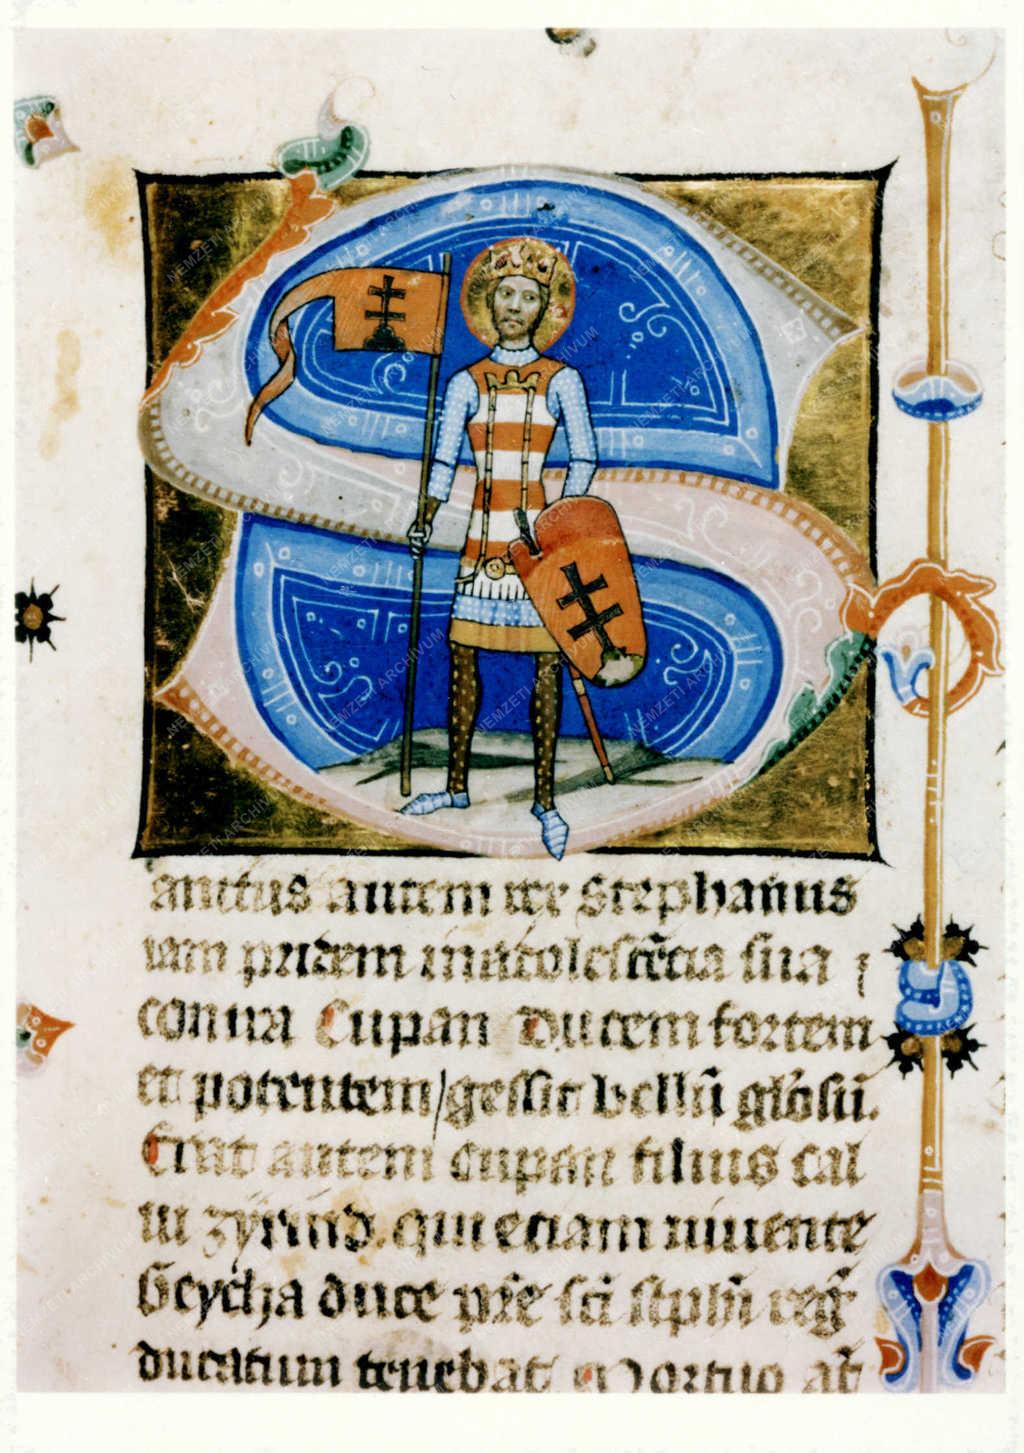 S
anctus autem rex Stephanus
iam pridem in adolescẽcia sua
contra Cupan Ducem fortem
et potentem/gessit bellũ gl'osũ.
Erat autem Cupan filius Cal
ui zyrind. qui eciam uiuente
Geycha duce pr̃e sci stphi reg̃
ducatum tenebat Mortuo at̃
NEMZETI ARCHIVUM